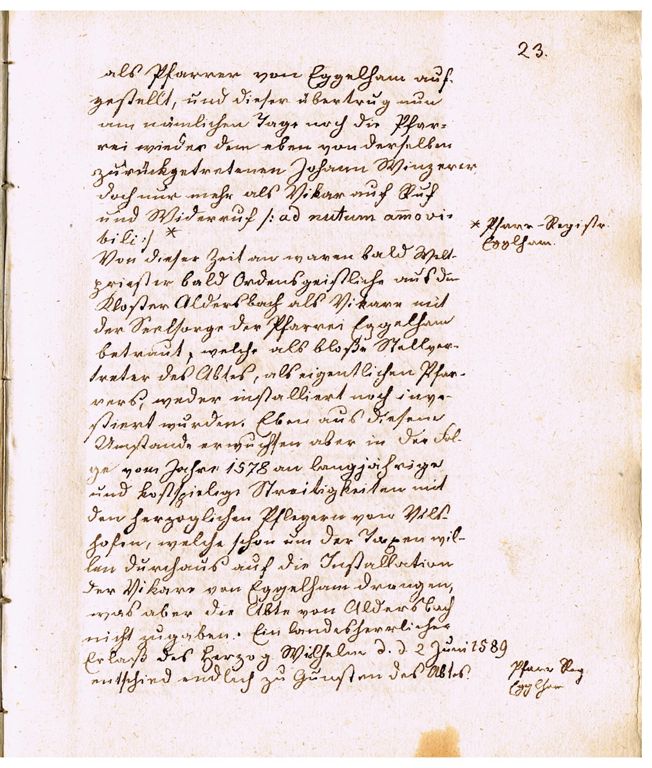 23.
als Pfarrer von Eggelham auf-
gestellt, und dieser übertrug nun
am nämlichen Tage noch die Pfar-
rei wieder dem eben von derselben
zurückgetretenen Johann Winzerer
doch nur mehr als Vikar auf Ruf
und Widerruf /: ad nutum amovi-
bili :/ *
* Pfarr-Registr.
Egglham.
Von dieser Zeit an waren bald Welt-
priester bald Ordensgeistliche aus dem
Kloster Aldersbach als Vikare mit
der Seelsorge der Pfarrei Eggelham
betraut, welche als bloße Stellver-
treter des Abtes, als eigentlichen Pfar-
rers, weder installiert noch inve-
stiert wurden. Eben aus diesem
Umstande erwuchsen aber in der Fol-
ge vom Jahre 1578 an langjährige
und kostspielige Streitigkeiten mit
den herzoglichen Pflegern von Vils-
hofen, welche schon um der Taxen wil-
len durchaus auf die Installation
der Vikare von Eggelham drangen,
was aber die Äbte von Aldersbach
nicht zugaben. Ein landesherrlicher
Erlaß des Herzog Wilhelm d. d. 2 Juni 1589
entschied endlich zu Gunsten des Abtes.
Pfarr Reg
Egglham